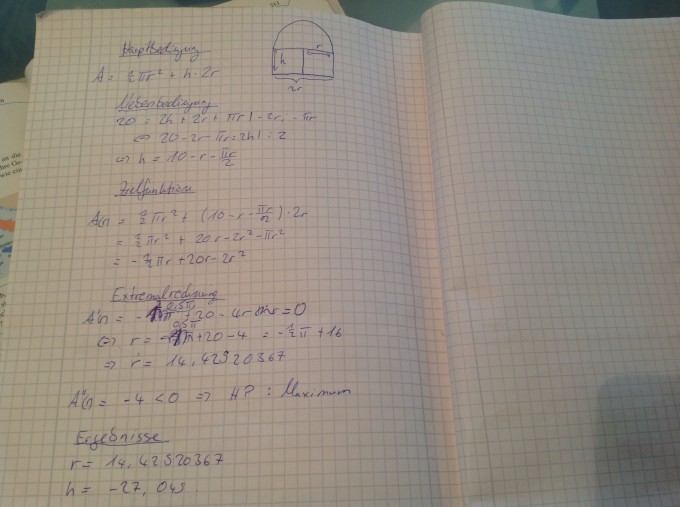 Hauptbedigung
A = ½πr² + h · 2r
r
h
2r
Nebenbedigung
20 = 2h + 2r + πr | - 2r, - πr
⇔ 20 - 2r - πr = 2h | : 2
=> h = 10 - r - πr/2
Zielfunktion
A(r) = ½πr² + (10 - r - πr/2) · 2r
= ½πr² + 20r - 2r² - πr²
= -½πr + 20r - 2r²
Extremalrechnung
A'(r) = - 0,5π + 20 - 4r = 0
⇔ r = - 0,5π + 20 - 4 = -½π + 16
=> r = 14,42920367
A''(r) = -4 < 0 => HP : Maximum
Ergebnisse
r = 14,42920367
h = -27,049